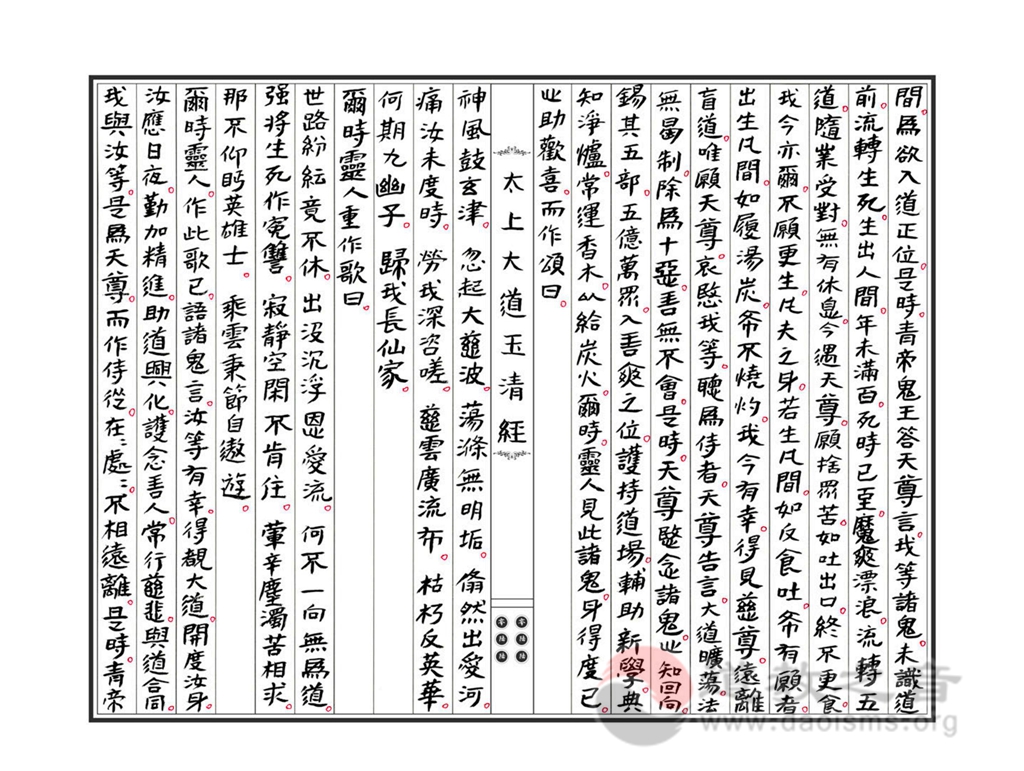 間。爲欲入道正位。是時。青帝鬼王答天尊言。我等諸鬼。未識道
前。流轉生死。生出人間。年未滿百。死時已至。魔爽漂浪。流轉五
道。隨業受對。無有休息。今遇天尊。願捨眾苦。如吐出口。終不更食。
我今亦爾。不願更生。凡夫之身。若生凡間。如反食吐。希有願者。
出生凡間。如履湯炭。希不燒灼。我今有幸。得見慈尊。遠離
盲道。唯願天尊。哀愍我等。聽爲侍者。天尊告言。大道曠蕩。法
無曷制。除爲十惡。善無不會。是時。天尊愍念諸鬼。心知回向。
錫其五部。五億萬眾。入善爽之位。護持道場。輔助新學。典
知淨爐。常運香木。以給炭火。爾時。靈人見此諸鬼。身得度已。
心助歡喜。而作頌曰。
太上大道玉清經
神風鼓玄津。忽起大慈波。蕩滌無明垢。翛然出愛河。
痛汝未度時。勞我深咨嗟。慈雲廣流布。枯朽反英華。
何期九幽子。歸我長仙家。
爾時靈人重作歌曰。
世路紛紜竟不休。出沒沉浮恩愛流。何不一向無爲道。
强將生死作冤讐。寂靜空閑不肯住。葷辛塵濁苦相求。
那不仰眄英雄士。乘雲秉節自遨遊。
爾時靈人。作此歌已。語諸鬼言。汝等有幸。得覩大道。開度汝身。
汝應日夜。勤加精進。助道興化。護念善人。常行慈悲。與道合同。
我與汝等。是爲天尊。而作侍從。在在處處。不相遠離。是時。青帝
道教之音
www.daoisms.org